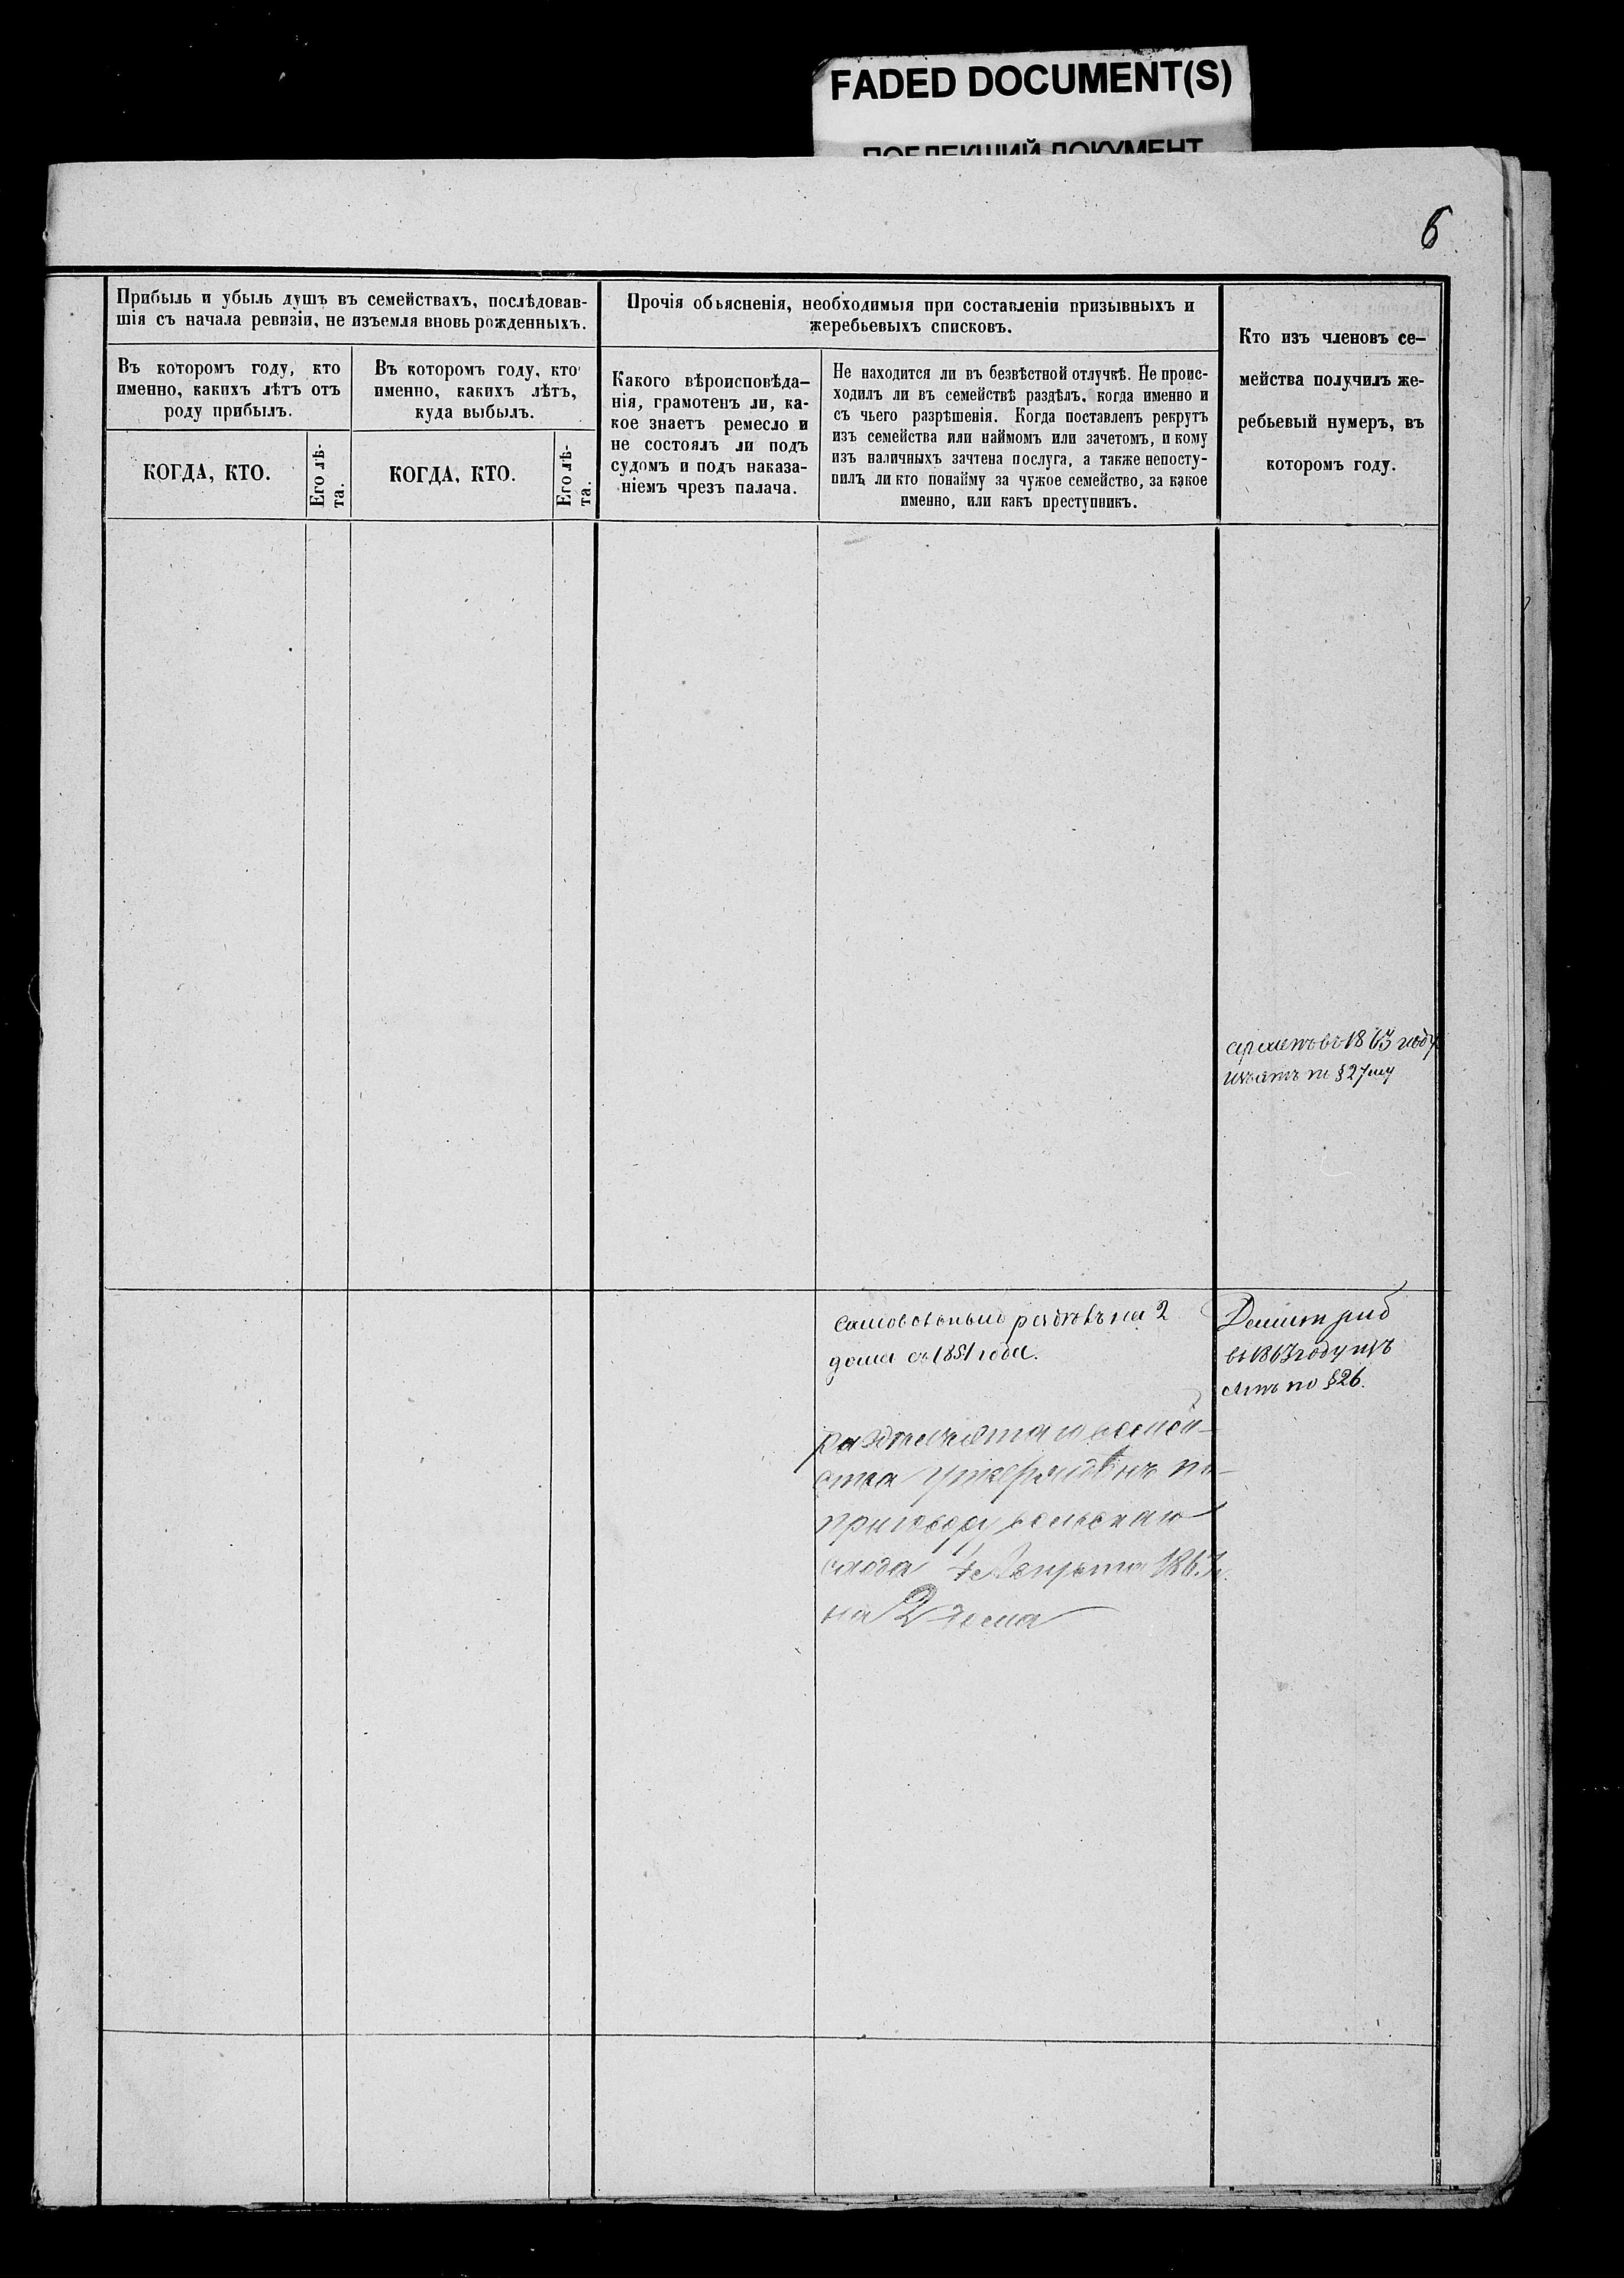 FADED DOCUMENT(S)
ПОБЛЕКШИЙ ДОКУМЕНТ
6
Прибыль и убыль душъ въ семействахъ, послѣдовав-
шія съ начала ревизіи, не изъемля вновь рожденныхъ.
Въ которомъ году, кто
именно, какихъ лѣтъ отъ
роду прибылъ.
КОГДА, КТО.
Его лѣ-
та.
Въ которомъ году, кто
именно, какихъ лѣтъ,
куда выбылъ.
КОГДА, КТО.
Его лѣ-
та.
Прочія объясненія, необходимыя при составленіи призывныхъ и
жеребьевыхъ списковъ.
Какого вѣроисповѣда-
нія, грамотенъ ли, ка-
кое знаетъ ремесло и
не состоялъ ли подъ
судомъ и подъ наказа-
ніемъ чрезъ палача.
Не находится ли въ безвѣстной отлучкѣ. Не проис-
ходилъ ли въ семействѣ раздѣлъ, когда именно и
съ чьего разрѣшенія. Когда поставленъ рекрутъ
изъ семейства или наймомъ или зачетомъ, и кому
изъ наличныхъ зачтена послуга, а также непосту-
пилъ ли кто понайму за чужое семейство, за какое
именно, или какъ преступникъ.
Кто изъ членовъ се-
мейства получилъ же-
ребьевый нумеръ, въ
которомъ году.
въ 1863 году
изъятъ по § 27му
самовольный раздѣлъ на 2
дома съ 1851 года.
въ 1863 году изъ
ятъ по § 26.
раздѣлъ семей-
ства утвержденъ по
приговору сельскаго
схода 4 Августа 1863 г.
на 2 дома